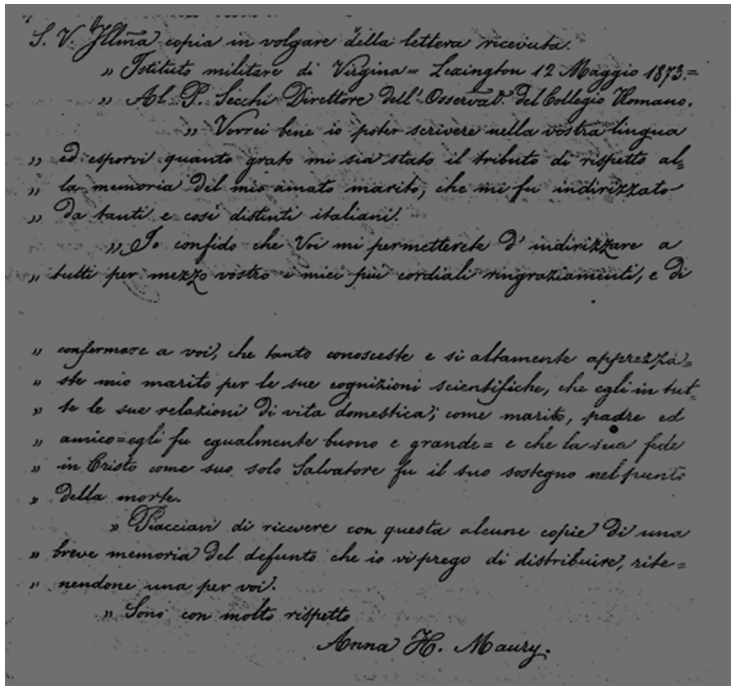 S. V. Illma copia in volgare della lettera ricevuta.
" Istituto militare di Virgina = Lexington 12 Maggio 1873. =
" Al P. Secchi Direttore dell' Osservat. del Collegio Romano.
" Vorrei bene io poter scrivere nella vostra lingua
" ed esporvi quanto grato mi sia stato il tributo di rispetto al=
" la memoria del mio amato marito, che mi fu indirizzato
" da tanti e così distinti italiani.
" Io confido che Voi mi permetterete d' indirizzare a
" tutti per mezzo vostro i miei più cordiali ringraziamenti, e di
" confermare a voi, che tanto conosceste e si altamente apprezza=
" ste mio marito per le sue cognizioni scientifiche, che egli in tut=
" te le sue relazioni di vita domestica; come marito, padre ed
" amico = egli fu egualmente buono e grande = e che la sua fede
" in Cristo come suo solo Salvatore fu il suo sostegno nel punto
" della morte.
" Piacciavi di ricevere con questa alcune copie di una
" breve memoria del defunto che io vi prego di distribuire, rite=
" nendone una per voi.
" Sono con molto rispetto
Anna H. Maury.